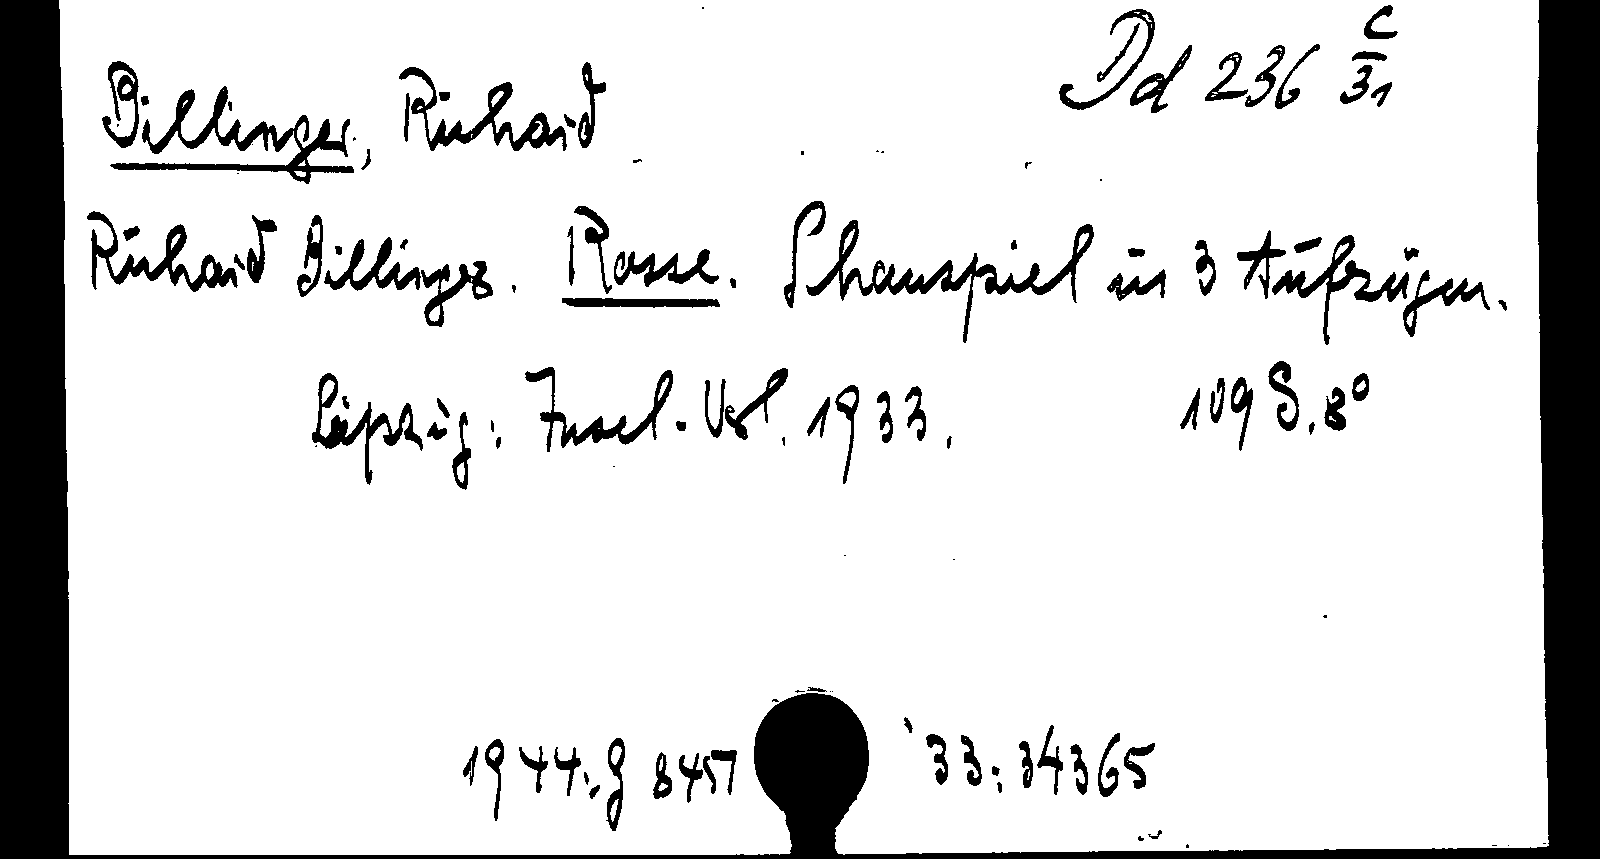 Dd 236 c/31
Billinger, Richard
Richard Billinger. Rosse. Schauspiel in 3 Aufzügen.
Leipzig: Insel-Verl. 1933. 109 S. 8°
1944. g 8457 33: 34365